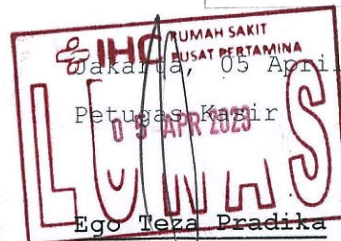 IHC RUMAH SAKIT
PUSAT PERTAMINA
Jakarta, 05 April
Petugas Kasir
05 APR 2023
LUNAS
Ego Teza Pradika